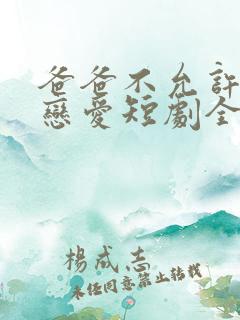 爸爸不允許
戀愛短劇全
楊成志
未任同意禁止转载